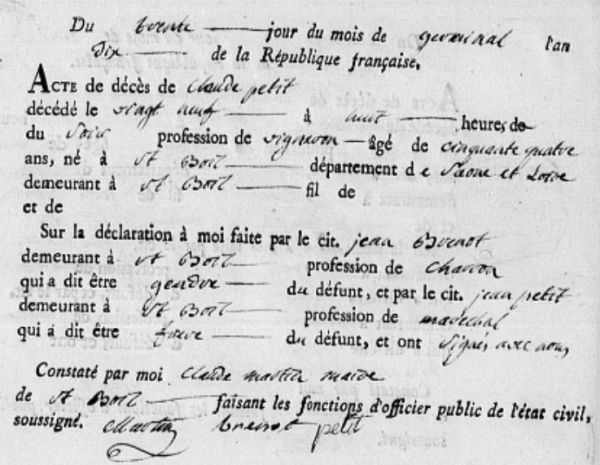 Du trente jour du mois de germinal l'an
Dix de la République française.
ACTE de décès de Claude petit
décédé le vingt neuf à huit heures de
du Soir profession de vigneron âgé de cinquante quatre
ans, né à St Boil département de Saone et Loire
demeurant à St Boil fil de
et de
Sur la déclaration à moi faite par le cit. jean Brenot
demeurant à St Boil profession de Charon
qui a dit être gendre du défunt, et par le cit. jean petit
demeurant à St Boil profession de marechal
qui a dit être frere du défunt, et ont signés avec nous
Constaté par moi Claude martin maire
de St Boil faisant les fonctions d'officier public de l'état civil,
soussigné. Martin brenot petit